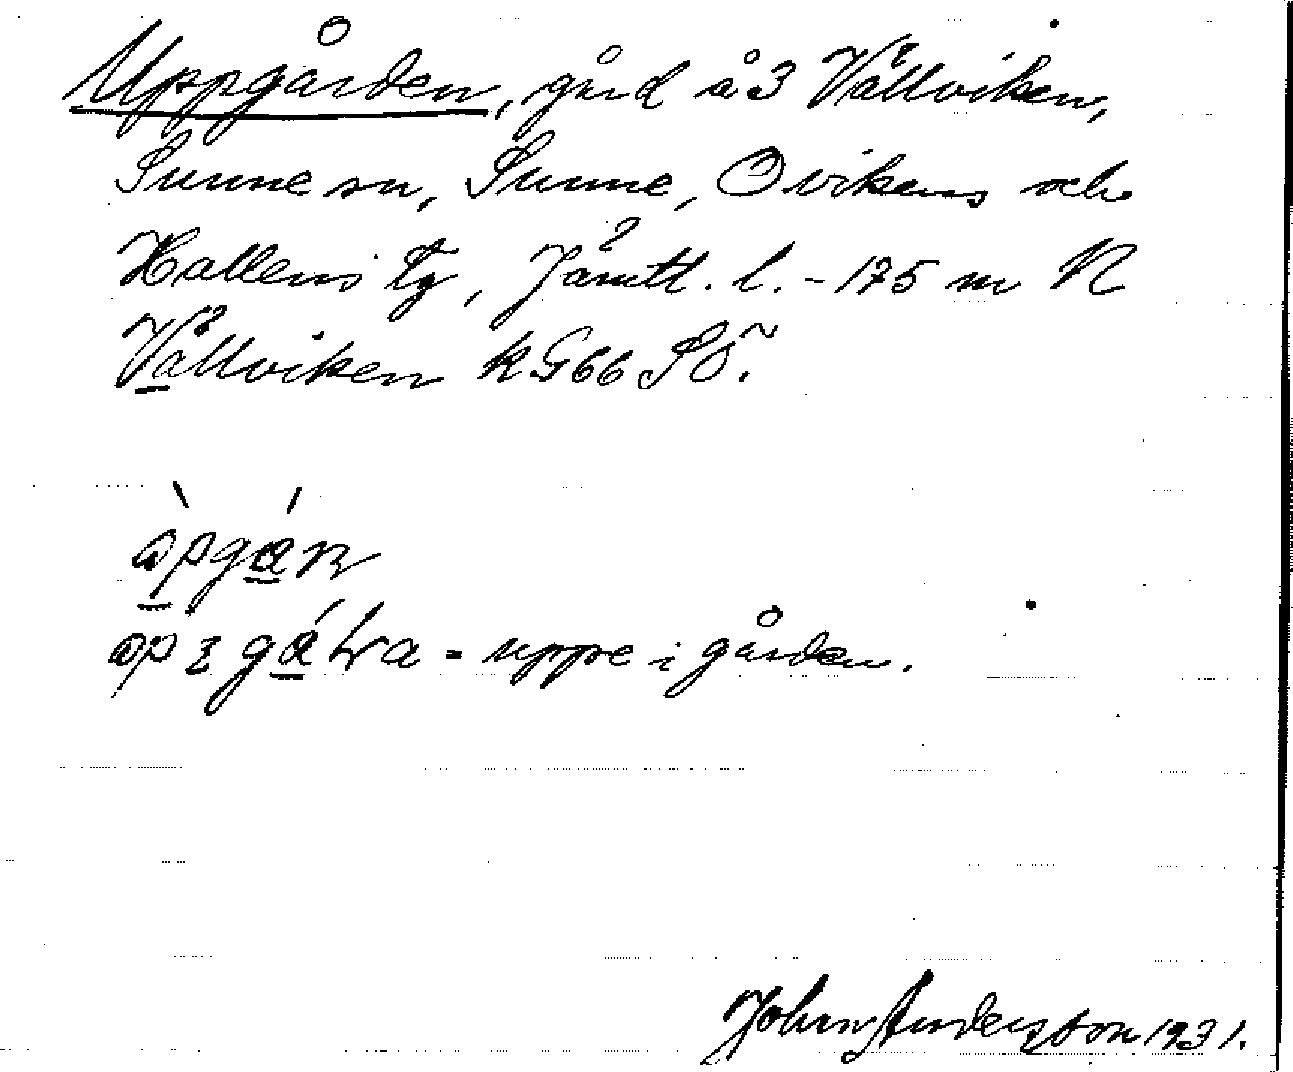 Uppgården, gård å 3 Vällviken,
Sunne sn, Sunne, Ovikens och
Hallens tg, Jämtl. l. - 175 m N
Vällviken k G66 SÖ.
uppe i gården.
John Anderson 1931.